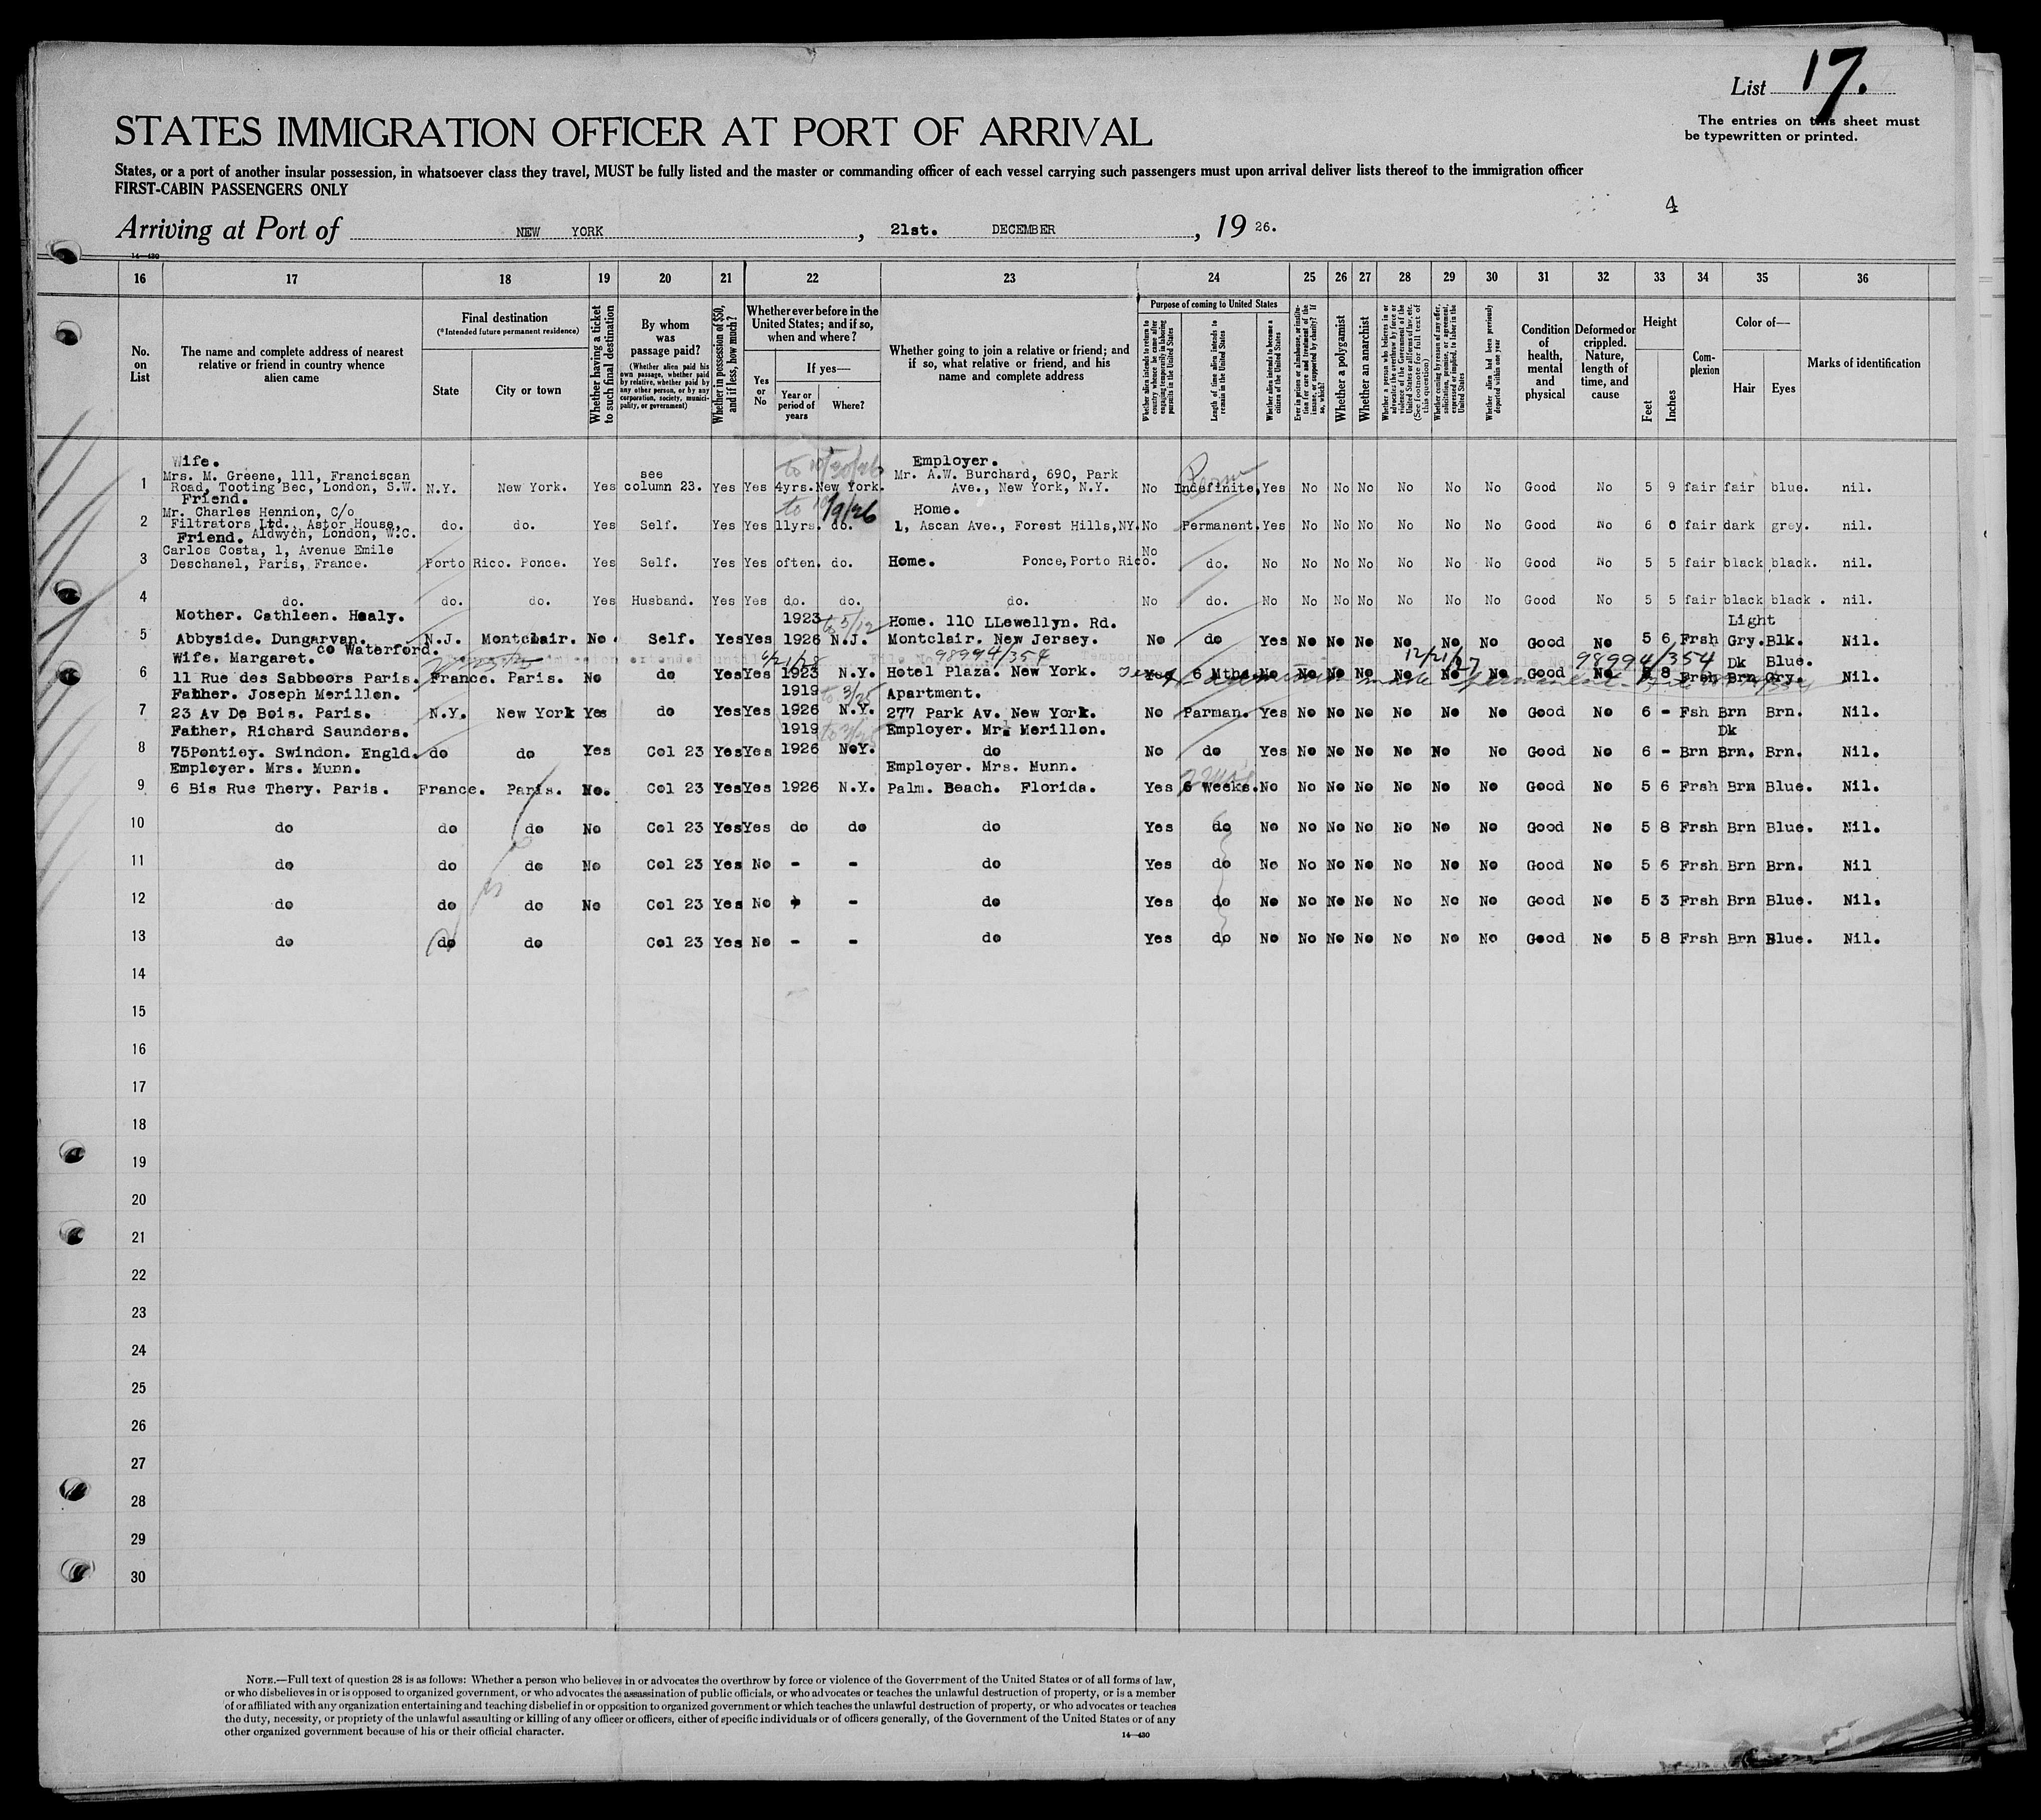 List 17.
The entries on this sheet must
be typewritten or printed.
STATES IMMIGRATION OFFICER AT PORT OF ARRIVAL
States, or a port of another insular possession, in whatsoever class they travel, MUST be fully listed and the master or commanding officer of each vessel carrying such passengers must upon arrival deliver lists thereof to the immigration officer
FIRST-CABIN PASSENGERS ONLY
4
Arriving at Port of NEW YORK, 21st. DECEMBER, 19 26.
14—430
16 17 18 19 20 21 22 23 24 25 26 27 28 29 30 31 32 33 34 35 36
No. on List
The name and complete address of nearest relative or friend in country whence alien came
Final destination
(*Intended future permanent residence)
State
City or town
Whether having a ticket to such final destination
By whom was passage paid?
(Whether alien paid his own passage, whether paid by relative, whether paid by any other person, or by any corporation, society, municipality, or government)
Whether in possession of $50, and if less, how much?
Whether ever before in the United States; and if so, when and where?
Yes or No
If yes—
Year or period of years
Where?
Whether going to join a relative or friend; and if so, what relative or friend, and his name and complete address
Purpose of coming to United States
Whether alien intends to return to country whence he came after engaging temporarily in laboring pursuits in the United States
Length of time alien intends to remain in the United States
Whether alien intends to become a citizen of the United States
Ever in prison or almshouse, or institution for care and treatment of the insane, or supported by charity? If so, which?
Whether a polygamist
Whether an anarchist
Whether a person who believes in or advocates the overthrow by force or violence of the Government of the United States or all forms of law, etc. (See footnote for full text of this question)
Whether coming by reason of any offer, solicitation, promise, or agreement, expressed or implied, to labor in the United States
Whether alien had been previously deported within one year
Condition of health, mental and physical
Deformed or crippled. Nature, length of time, and cause
Height
Feet
Inches
Complexion
Color of—
Hair
Eyes
Marks of identification
Wife. to 10/30/26 Employer.
1 Mrs. M. Greene, 111, Franciscan Road, Tooting Bec, London, S.W. N.Y. New York. Yes see column 23. Yes Yes 4yrs. New York. Mr. A.W. Burchard, 690, Park Ave., New York, N.Y. No Perm Indefinite, Yes No No No No No No Good No 5 9 fair fair blue. nil.
Friend. Home.
2 Mr. Charles Hennion, C/o Filtrators Ltd., Astor House, Aldwych, London, W.C. do. do. Yes Self. Yes Yes 11yrs. do. 1, Ascan Ave., Forest Hills, NY. No Permanent. Yes No No No No No No Good No 6 0 fair dark grey. nil.
Friend.
3 Carlos Costa, 1, Avenue Emile Deschanel, Paris, France. Porto Rico. Ponce. Yes Self. Yes Yes often. do. Home. Ponce, Porto Rico. No do. No No No No No No No Good No 5 5 fair black black. nil.
4 do. do. do. Yes Husband. Yes Yes do. do. do. No do. No No No No No No No Good No 5 5 fair black black. nil.
Mother. Cathleen. Healy. 1923 to 5/12 Home. 110 LLewellyn. Rd. Light
5 Abbyside. Dungarvan. co Waterford. N.J. Montclair. No. Self. Yes Yes 1926 N.J. Montclair. New Jersey. No do Yes No No No No No No Good No 5 6 Frsh Gry. Blk. Nil.
Wife. Margaret. 6/21/28 98994/354 12/21/27 98994/354 Dk Blue.
6 11 Rue des Sabboors Paris. France. Paris. No do Yes Yes 1923 N.Y. Hotel Plaza. New York. Yes 6 Mths. No No No No No No No Good No 5 8 Frsh Brn Gry. Nil.
Father. Joseph Merillon. 1919 to 3/25 Apartment.
7 23 Av De Bois. Paris. N.Y. New York Yes do Yes Yes 1926 N.Y. 277 Park Av. New York. No Parman. Yes No No No No No No Good No 6 - Fsh Brn Brn. Nil.
Father, Richard Saunders. 1919 Employer. Mr. Merillon. Dk
8 75Pontiey. Swindon. Engld. do do Yes Col 23 Yes Yes 1926 NoY. do No do Yes No No No No No No Good No 6 - Brn Brn. Brn. Nil.
Employer. Mrs. Munn. Employer. Mrs. Munn.
9 6 Bis Rue Thery. Paris. France. Paris. No. Col 23 Yes Yes 1926 N.Y. Palm. Beach. Florida. Yes 6 Weeks. No No No No No No No Good No 5 6 Frsh Brn Blue. Nil.
10 do do do No Col 23 Yes Yes do do do Yes do No No No No No No No Good No 5 8 Frsh Brn Blue. Nil.
11 do do do No Col 23 Yes No - - do Yes do No No No No No No No Good No 5 6 Frsh Brn Brn. Nil
12 do do do No Col 23 Yes No - - do Yes do No No No No No No No Good No 5 3 Frsh Brn Blue. Nil.
13 do do do Col 23 Yes No - - do Yes do No No No No No No No Good No 5 8 Frsh Brn Blue. Nil.
14
15
16
17
18
19
20
21
22
23
24
25
26
27
28
29
30
NOTE.—Full text of question 28 is as follows: Whether a person who believes in or advocates the overthrow by force or violence of the Government of the United States or of all forms of law,
or who disbelieves in or is opposed to organized government, or who advocates the assassination of public officials, or who advocates or teaches the unlawful destruction of property, or is a member
of or affiliated with any organization entertaining and teaching disbelief in or opposition to organized government or which teaches the unlawful destruction of property, or who advocates or teaches
the duty, necessity, or propriety of the unlawful assaulting or killing of any officer or officers, either of specific individuals or of officers generally, of the Government of the United States or of any
other organized government because of his or their official character.
14—430